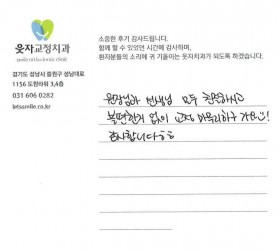 웃자교정치과
경기도 성남시 중원구 성남대로
1156 도원타워 3,4층
031 606 0282
letssmile.co.kr
소중한 후기 감사드립니다.
함께 할 수 있었던 시간에 감사하며,
환자분들의 소리에 귀 기울이는 웃자치과가 되도록 하겠습니다.
원장님과 선생님 모두 친절하시고
불편한거 없이 교정 마무리하구 가요:)!
감사합니다ㅎㅎ